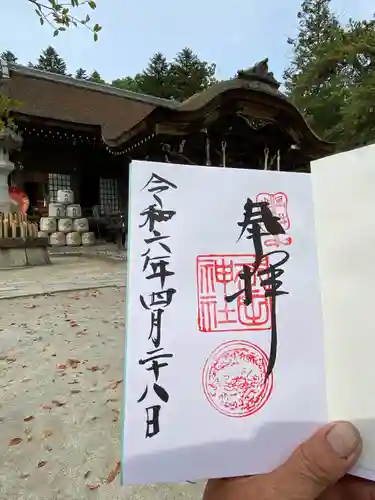 奉拝
神社
令和六年四月二十八日